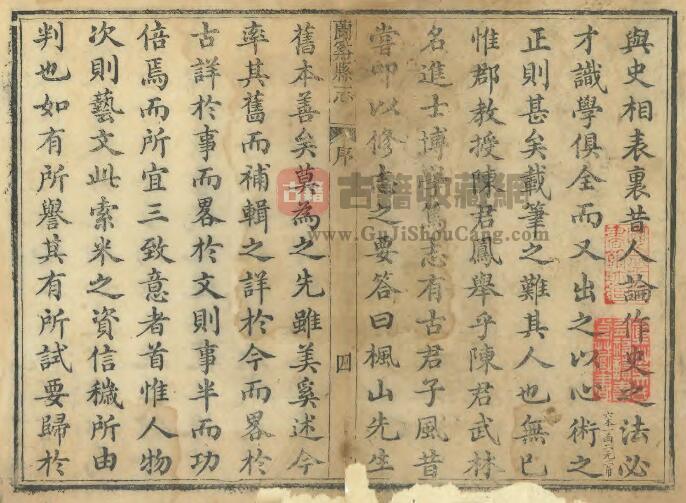 與史相表裏昔人論作史之法必
才識學俱全而又出之以心術之
正則甚矣載筆之難其人也無已
惟郡教授陳君鳳舉乎陳君武林
名進士博 有古君子風昔
嘗叩以修 之要答曰楓山先生
蘭谿縣志 序 四
舊本善矣莫為之先雖美奚述今
率其舊而補輯之詳於今而畧於
古詳於事而畧於文則事半而功
倍焉而所宜三致意者首惟人物
次則藝文此索米之資信穢所由
判也如有所譽其有所試要歸於
古籍
古籍收藏網
www.GuJiShouCang.com